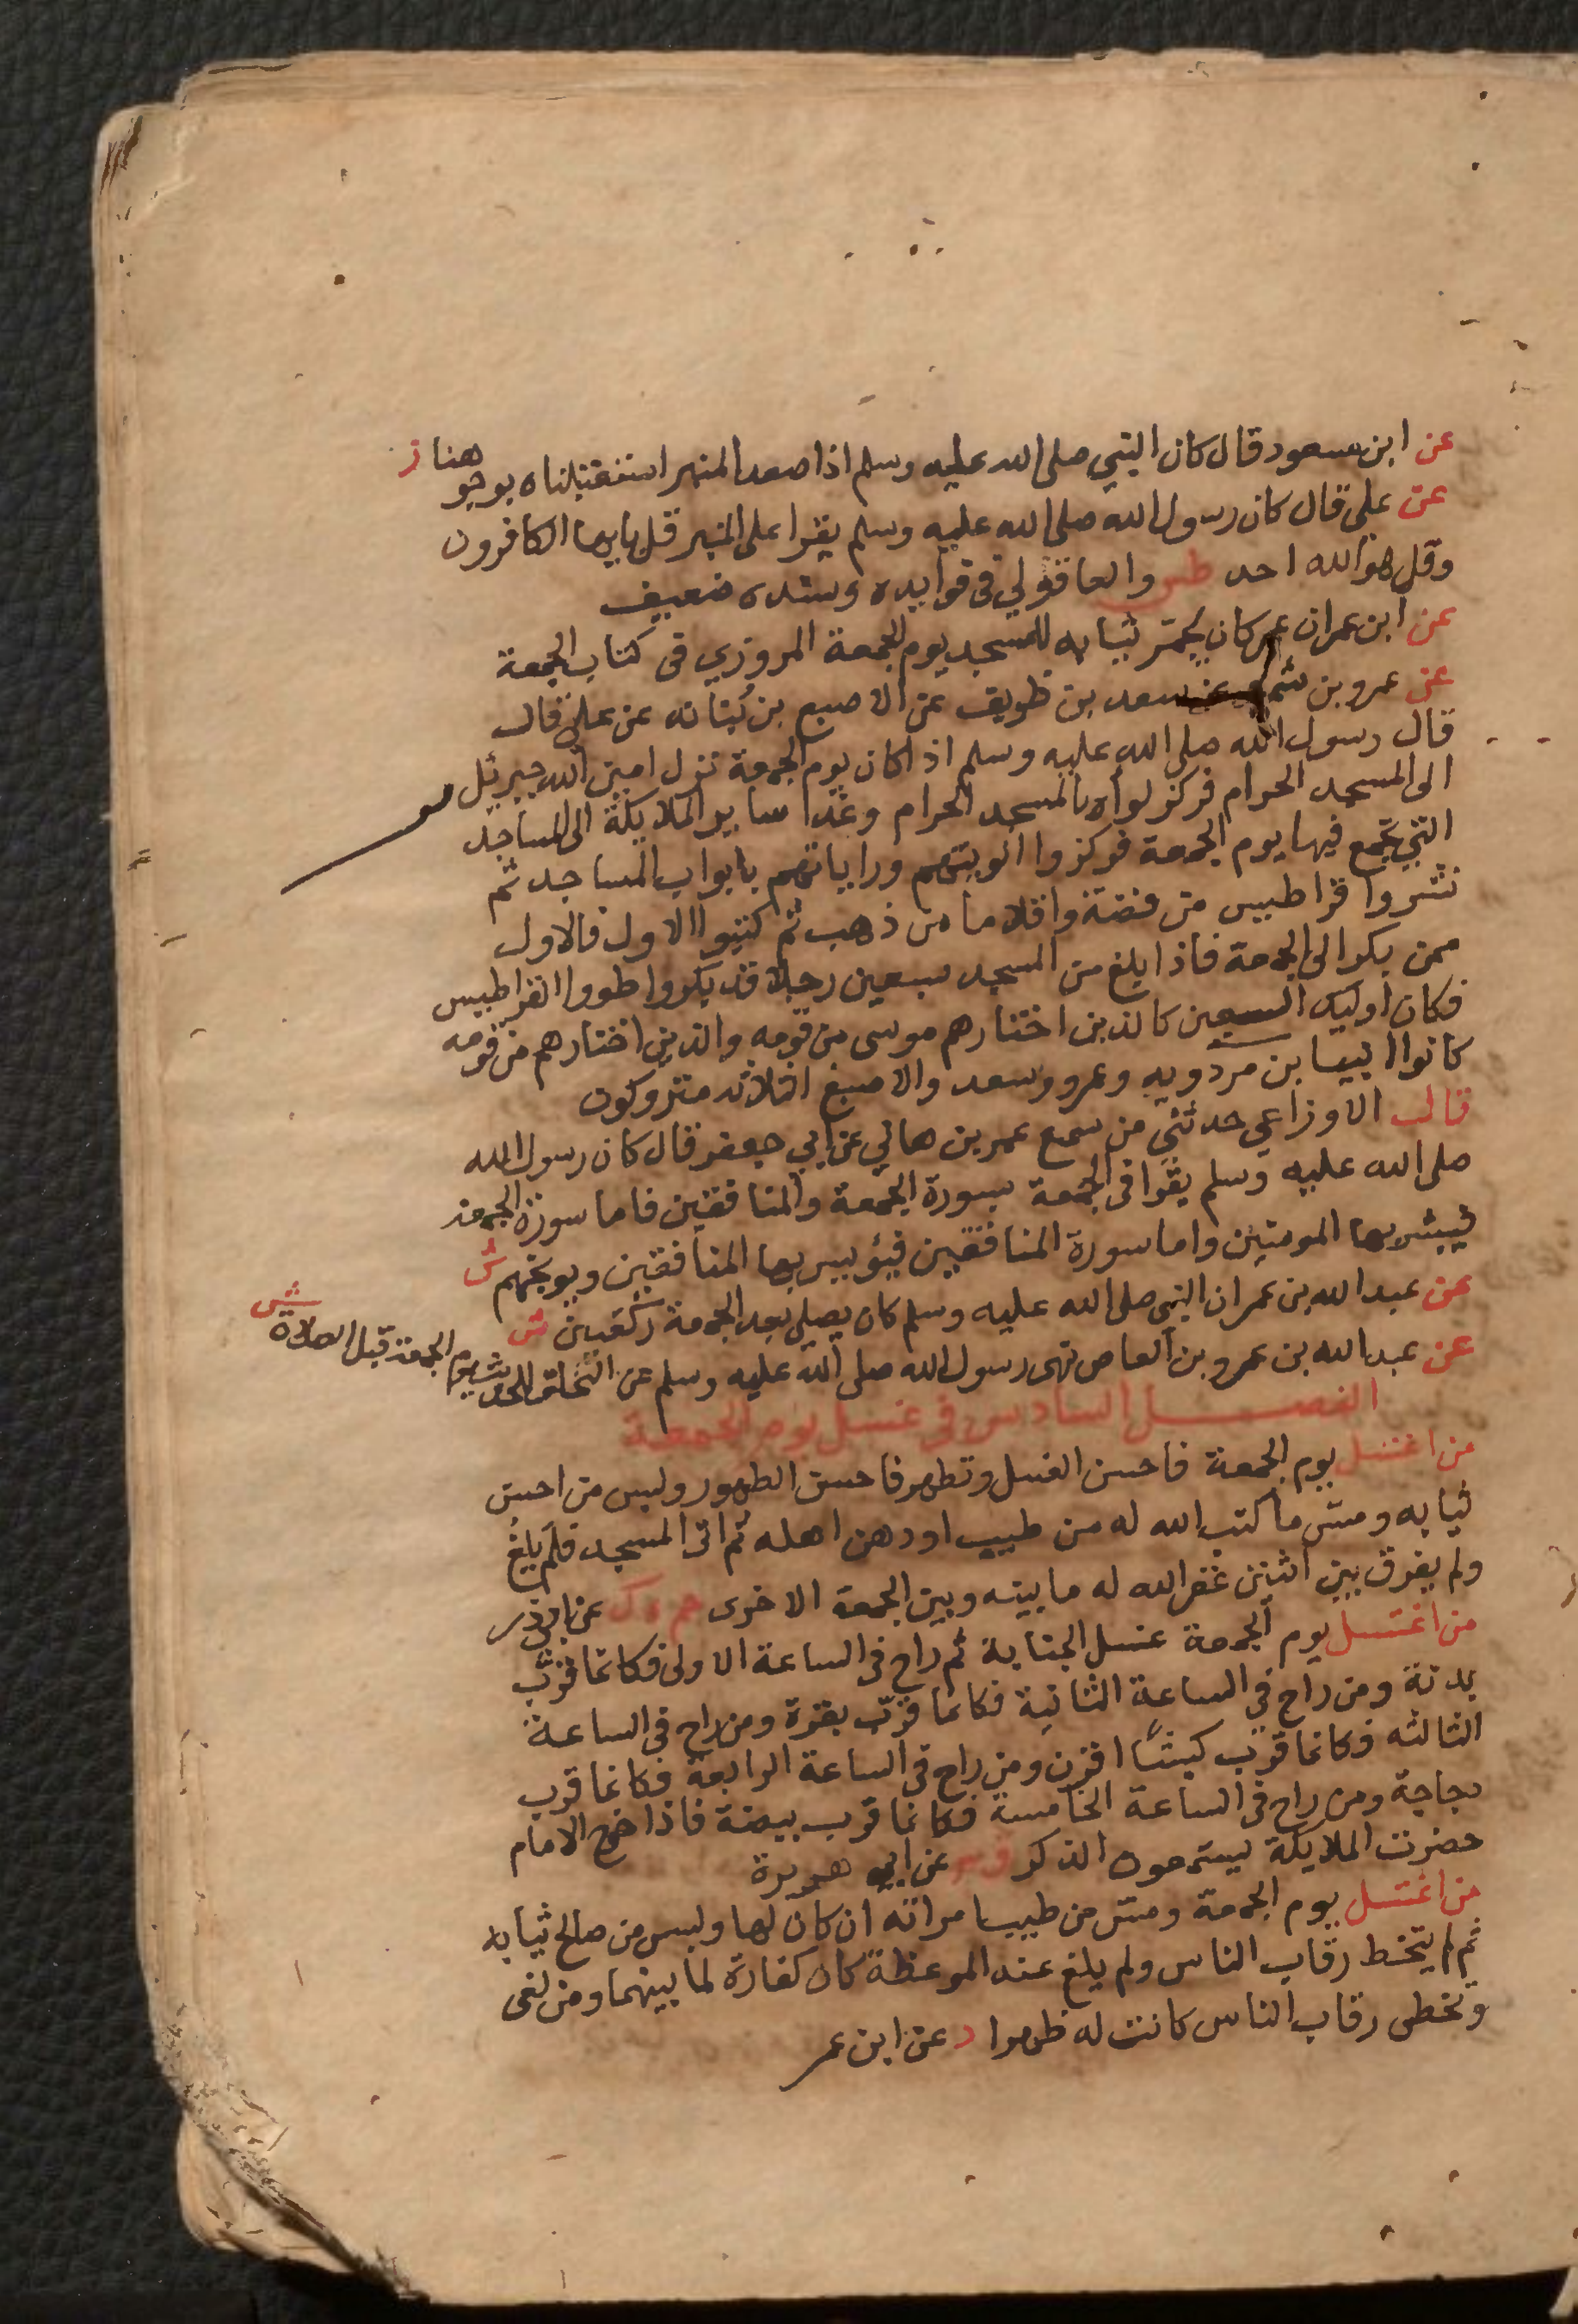 عن ابن مسعود قال كان النبي صلى الله عليه وسلم اذا صعد المنبر استقبلناه بوجوهنا ز
عن علي قال كان رسول الله صلى الله عليه وسلم يقرا على المنبر قل يايها الكافرون
وقل هو الله احد طس والعاقولي فى فوايده وسنده ضعيف
عن ابن عمر ان عمر كان يجمّر ثيابه للمسجد يوم الجمعة المروزي فى كتاب الجمعة
عن عمرو بن شمر عن سعد بن ظريف عن الاصبع بن نُباته عن علي قال
قال رسول الله صلى الله عليه وسلم اذا كان يوم الجمعة نزل امين الله جبرئيل
الى المسجد الحرام فركز لواه بالمسجد الحرام وغدا ساير الملايكة الى المساجد
التي يجمع فيها يوم الجمعة فركزوا الويتهم وراياتهم بابواب المساجد ثم
نشروا قراطيس من فضة واقلاما من ذهب ثم كتبوا الاول فالاول
ممن بكر الى الجمعة فاذا بلغ من المسجد سبعين رجلا قد بكروا طووا القراطيس
فكان اوليك السبعين كالذين اختارهم موسى من قومه والذين اختارهم من قومه
كانوا انبيا بن مردويه وعمرو وسعد والاصبغ الثلاثه متروكون
قال الاوزاعي حدثني من سمع عمر بن هاني عن ابي جعفر قال كان رسول الله
صلى الله عليه وسلم يقرا فى الجمعة بسورة الجمعة والمنافقين فاما سورة الجمعة
فيبشر بها المومنين واما سورة المنافقين فيؤييس بها المنافقين ويوبخهم ش
عن عبد الله بن عمر ان النبي صلى الله عليه وسلم كان يصلي بعد الجمعة ركعتين ش
عن عبد الله بن عمرو بن العاص نهى رسول الله صلى الله عليه وسلم عن التحلق للحديث يوم الجمعة قبل الصلاة ش
الفصل السادس فى غسل يوم الجمعة
من اغتسل يوم الجمعة فاحسن الغسل وتطهر فاحسن الطهور ولبس من احسن
ثيابه ومس ما كتب الله له من طيب او دهن اهله ثم اتى المسجد فلم يلغ
ولم يفرق بين اثنين غفر الله له ما بينه وبين الجمعة الاخرى حم ه ك عن ابي ذر
من اغتسل يوم الجمعة غسل الجنابة ثم راح فى الساعة الاولى فكانما قرّب
بدنة ومن راح في الساعة الثانية فكانما قرّب بقرة ومن راح فى الساعة
الثالثه فكانما قرب كبشًا اقرن ومن راح فى الساعة الرابعة فكانما قرب
دجاجة ومن راح فى الساعة الخامسة فكانما قرب بيضة فاذا خرج الامام
حضرت الملايكة يستمعون الذكر عن ابي هريرة
من اغتسل يوم الجمعة ومسّ من طيب امراته ان كان لها ولبس من صالح ثيابه
ثم لم يتخط رقاب الناس ولم يلغ عند الموعظة كان كفارة لما بينهما ومن لغى
وتخطى رقاب الناس كانت له ظهرا د عن ابن عمر